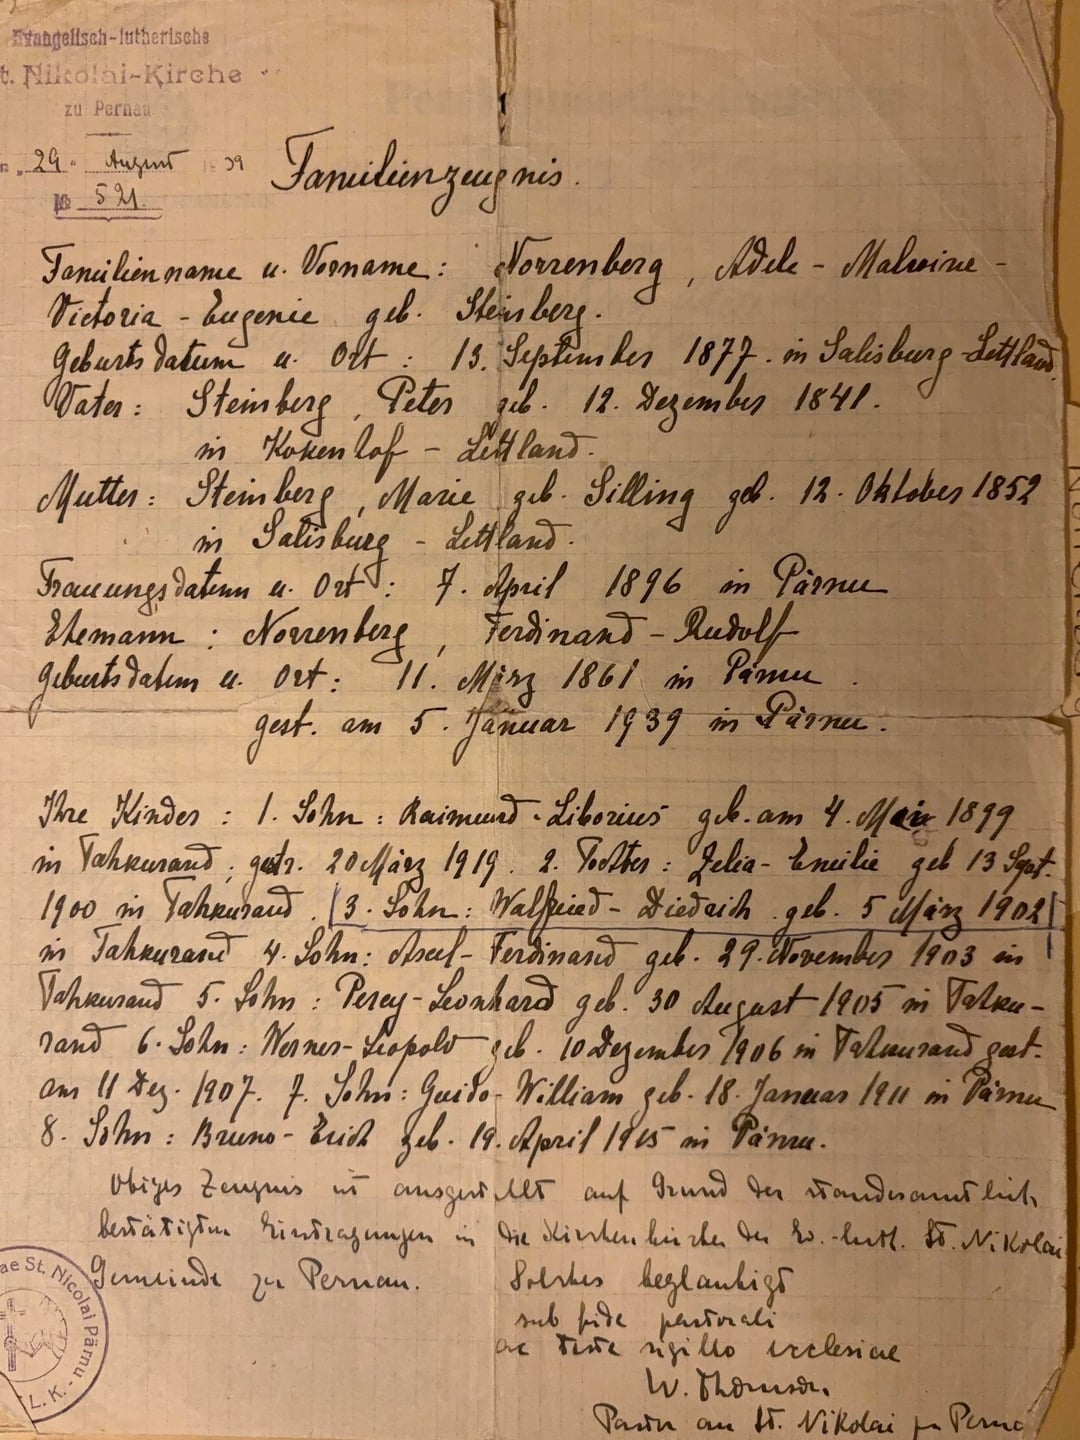 Evangelisch-lutherische
t. Nikolai-Kirche
zu Pernau
"29" August 39
№ 521.
Familienzeugnis.
Familienname u. Vorname: Norrenberg, Adele - Malwine -
Victoria - Eugenie geb. Steinberg.
Geburtsdatum u. Ort: 13. September 1877. in Salisburg - Lettland.
Vater: Steinberg, Peter geb. 12. Dezember 1841.
in Kokenhof - Lettland.
Mutter: Steinberg, Marie geb. Silling geb. 12. Oktober 1852
in Salisburg - Lettland.
Trauungsdatum u. Ort: 7. April 1896 in Pärnu
Ehemann: Norrenberg, Ferdinand - Rudolf
Geburtsdatum u. Ort: 11. März 1861 in Pärnu.
gest. am 5. Januar 1939 in Pärnu.
Ihre Kinder: 1. Sohn: Raimund - Liborius geb. am 4. 1899
in Tahkurand; gestr. 20 März 1919. 2. Tochter: Zelia - Emilie geb 13 Sept.
1900 in Tahkurand. (3. Sohn: Walfried - Diedrich geb. 5 März 1902)
in Tahkurand 4. Sohn: Axel - Ferdinand geb. 29. November 1903 in
Tahkurand 5. Sohn: Percy - Leonhard geb. 30 August 1905 in Tahku-
rand 6. Sohn: Werner - Leopold geb. 10 Dezember 1906 in Tahkurand gest.
am 11 Dez. 1907. 7. Sohn: Guido - William geb. 18. Januar 1911 in Pärnu
8. Sohn: Bruno - Erich geb. 19. April 1915 in Pärnu.
Obiges Zeugnis ist ausgestellt auf Grund der standesamtlich
bestätigten Eintragungen in die Kirchenbücher der Ev.-luth. St. Nikolai
Gemeinde zu Pernau. Solches beglaubigt
sub fide pastorali
ac teste sigillo ecclesiae
W. Thomson.
Pastor an St. Nikolai zu Perna
ae St. Nicolai Pärnu
L. K.